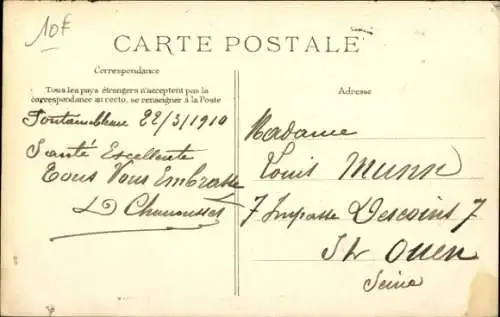 10F
CARTE POSTALE
Correspondance
Tous les pays étrangers n'acceptent pas la
correspondance au recto, se renseigner à la Poste
Adresse
Fontainebleau 22/3/1910
Santé Excellente
Tous Vous Embrasse
Madame
Louis Munn
7 Impasse Descoins 7
St Ouen
Seine